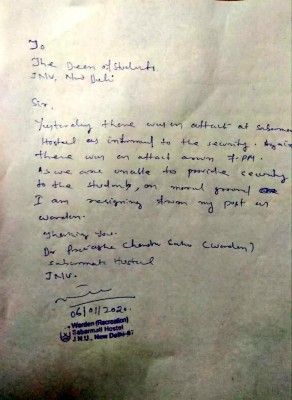 To
The Deen of students
JNU, New Delhi
Sir,
Yesterday there was an attack at Sabarmati
Hostel as informed to the security. Again
there was an attack around 7 PM.
As we are unable to provide security
to the students, on moral ground
I am resigning from my post as
warden.
Thanking you.
Dr Chandra Sahu (warden)
Sabarmati Hostel
JNU.
06/01/2020.
Warden (Recreation)
Sabarmati Hostel
J.N.U., New Delhi-67